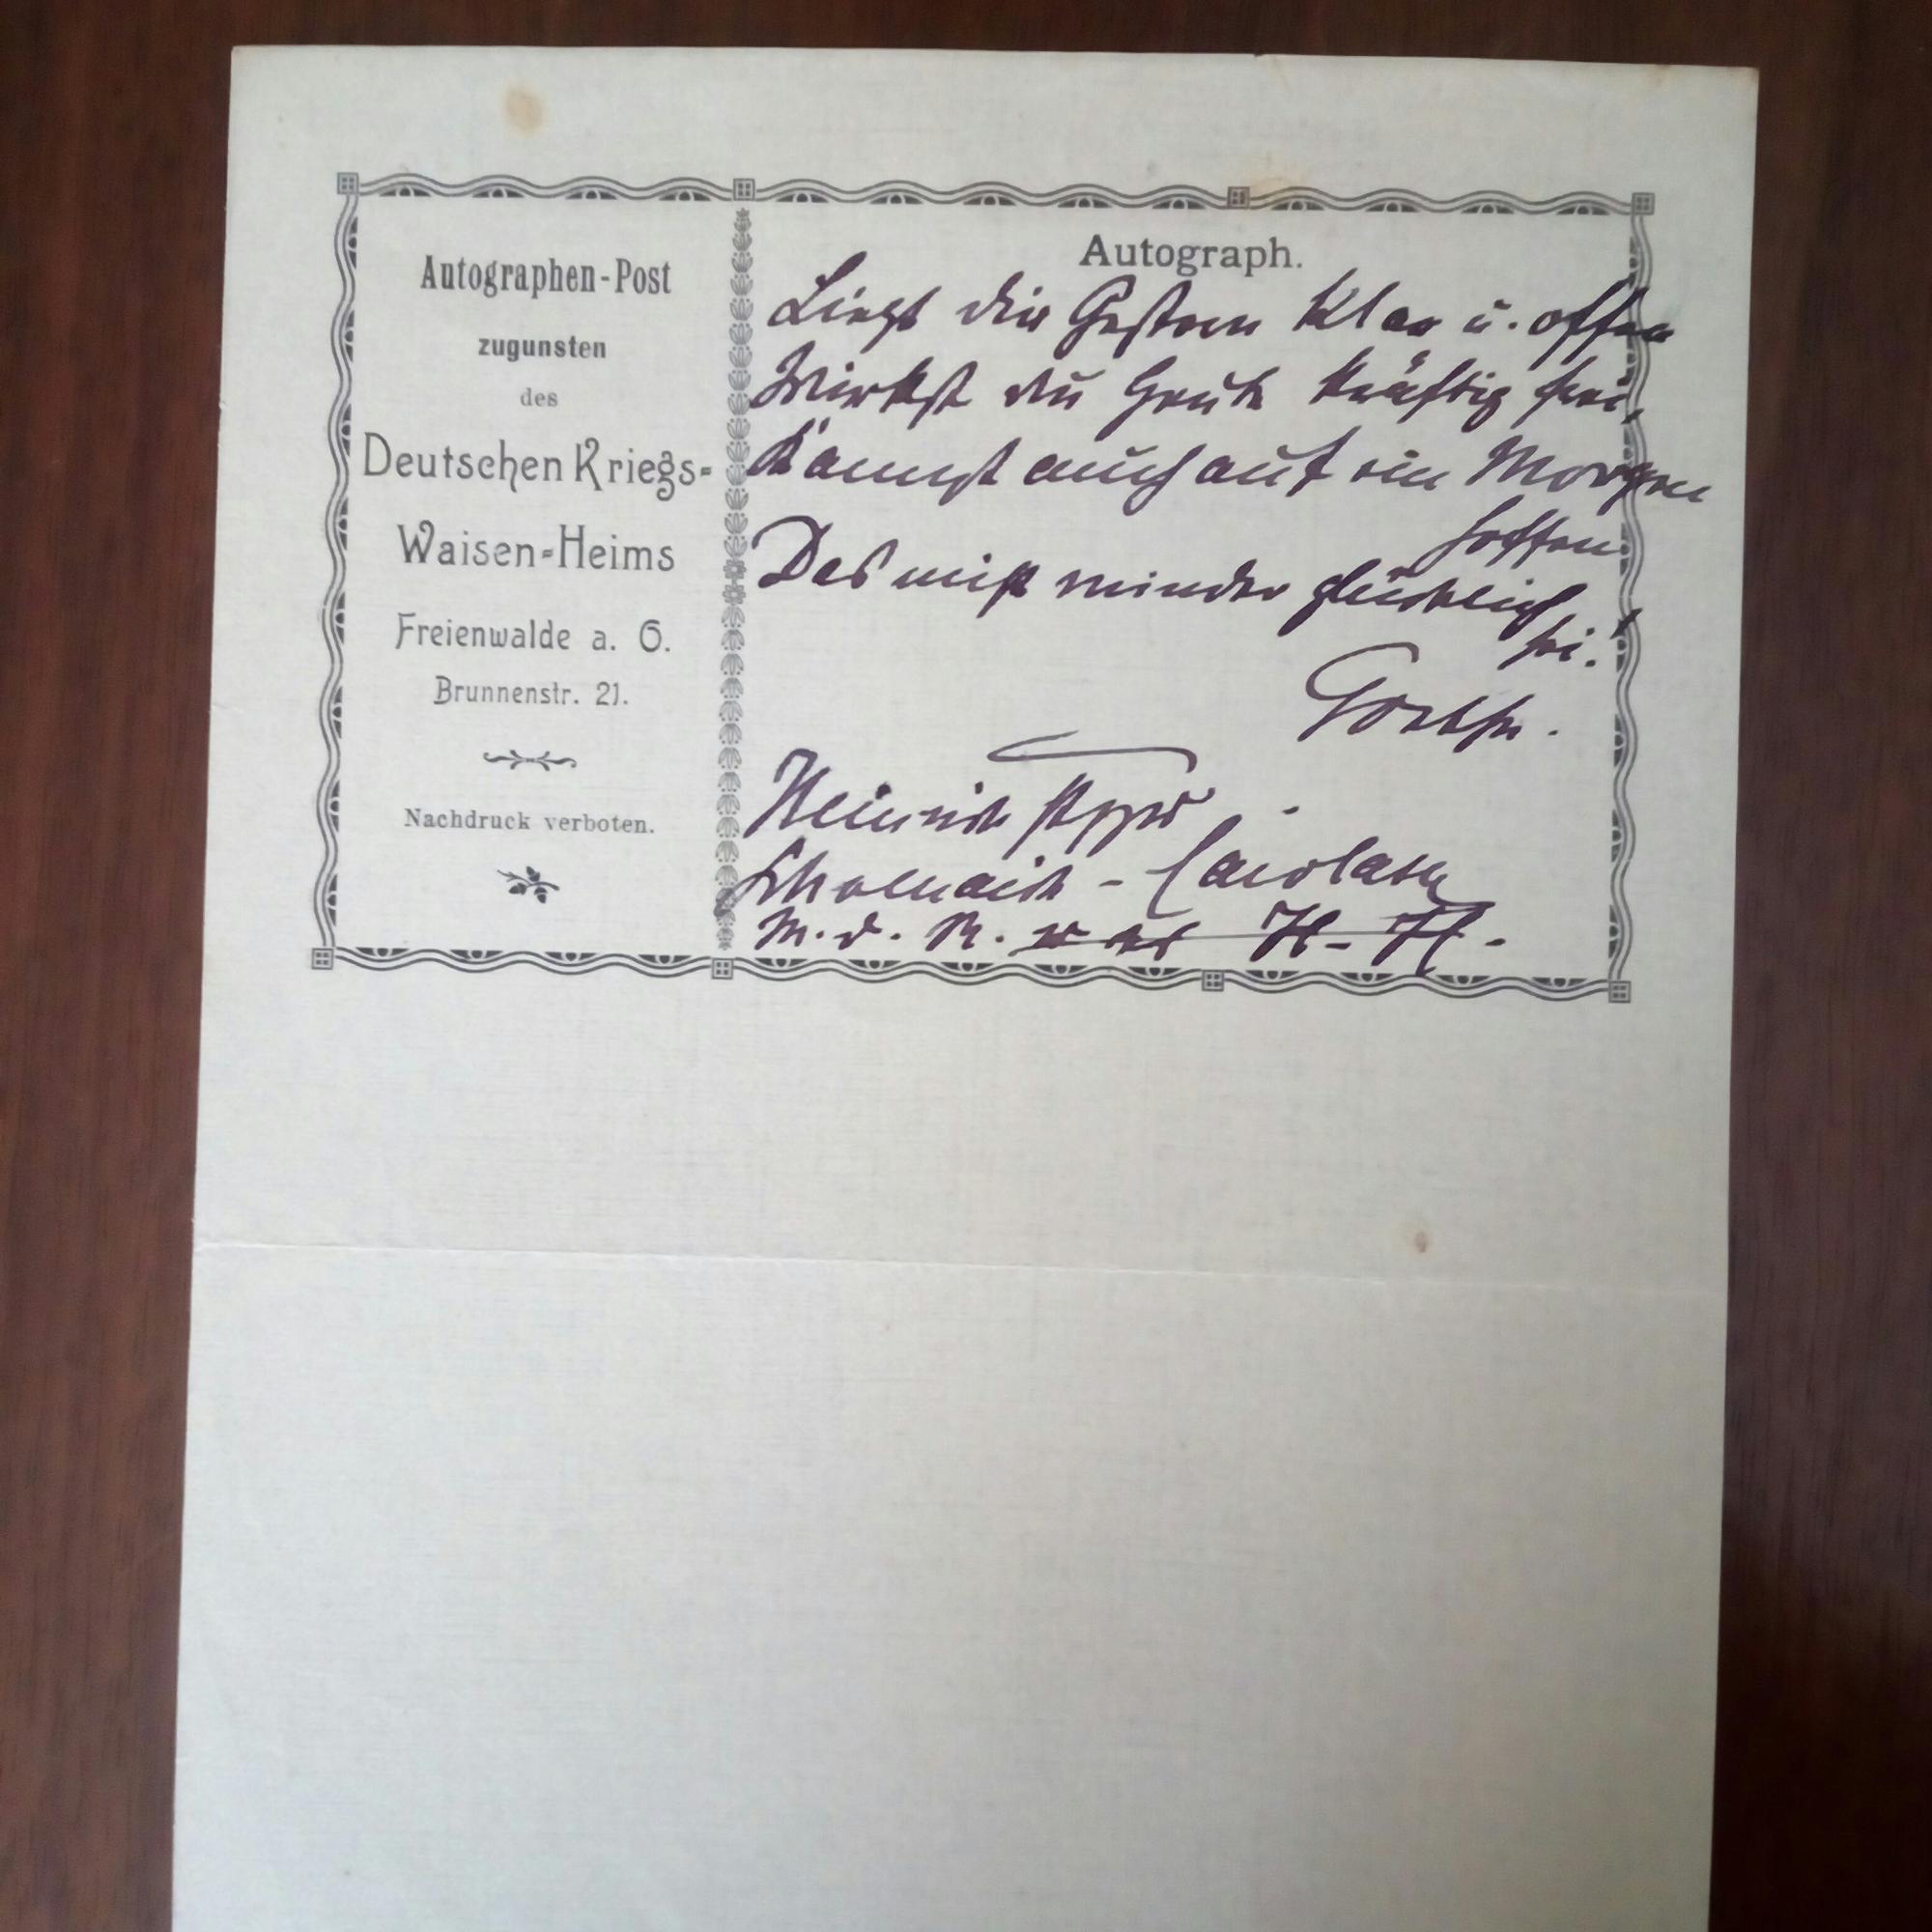 Autographen-Post
zugunsten
des
Deutschen Kriegs-
Waisen-Heims
Freienwalde a. O.
Brunnenstr. 21.
Nachdruck verboten.
Autograph.
Liegt dir Gestern klar u. offen
Wirkst du Heute kräftig frei,
Kannst auch auf ein Morgen
hoffen
Das nicht minder glücklich
sei.
Goethe.
Heinrich
Schoenaich-Carolath
M. d. R. H-H.